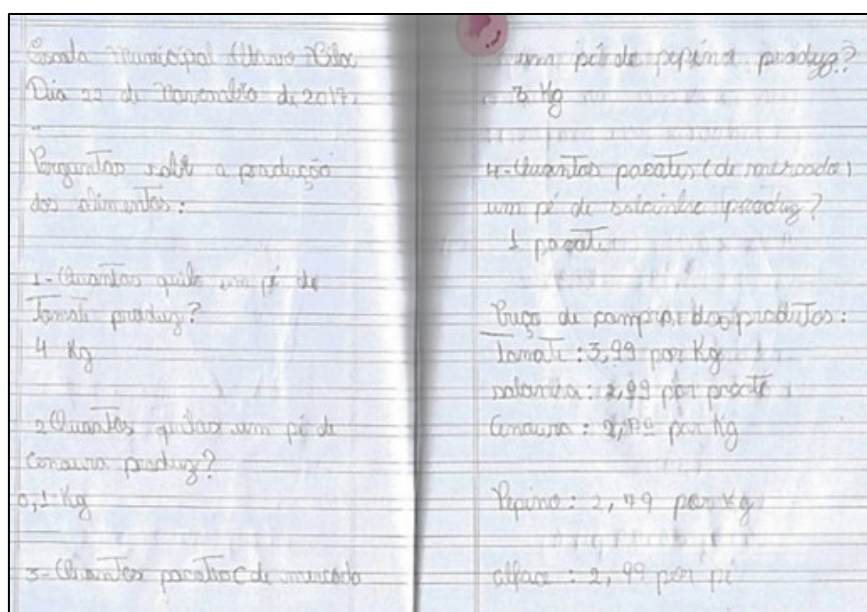 Escola Municipal
Dia 22 de Novembro de 2017.
Perguntas sobre a produção
dos alimentos:
1-Quantas quilo um pé de
Tomate produz?
4 Kg
2 Quantos quilos um pé de
Cenoura produz?
0,1 Kg
3-Quantos pacotes (de mercado
um pé de pepino produz?
3 Kg
4-Quantos pacotes (de mercado)
um pé de produz?
1 pacote
Preço de compra dos produtos:
Tomate : 3,99 por Kg
2,99 por
Cenoura : por Kg
Pepino : 2,79 por Kg
alface : 2,99 por pé